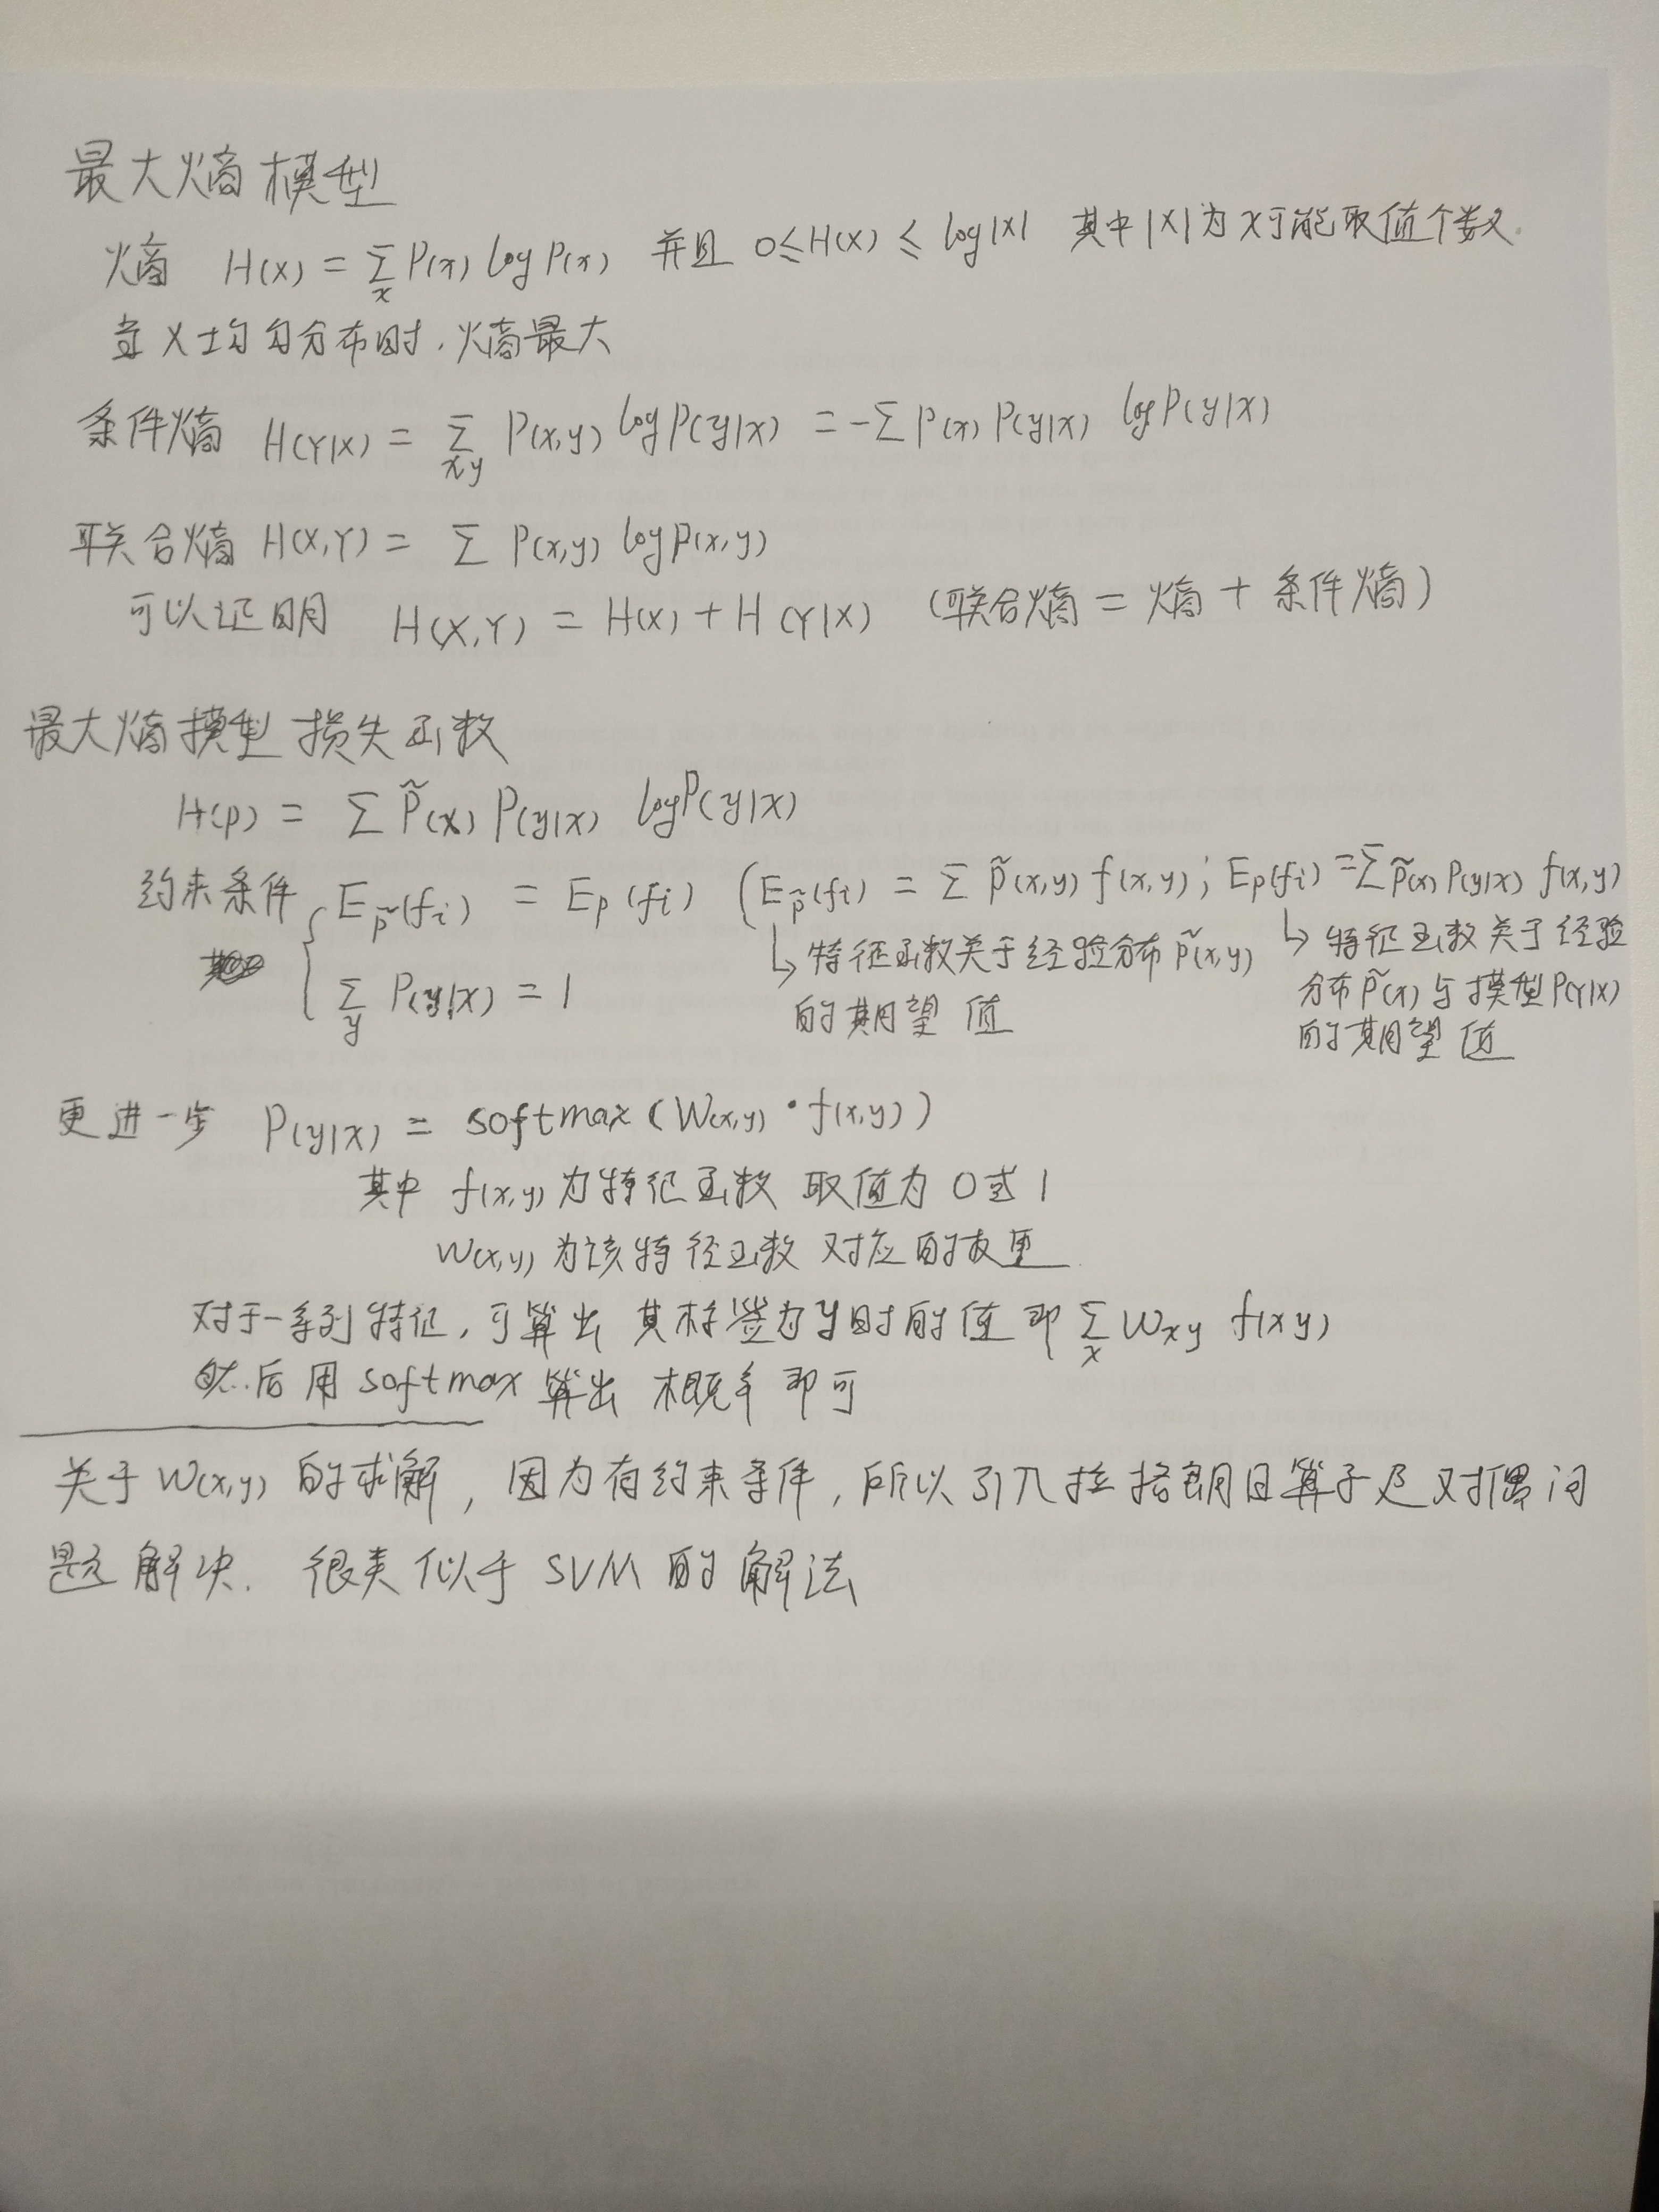 最大熵模型
熵 H(X) = Σ_x P(x) log P(x) 并且 0 ≤ H(X) ≤ log|X| 其中|X|为X可能取值个数.
当X均匀分布时,熵最大
条件熵 H(Y|X) = Σ_{x,y} P(x,y) log P(y|x) = -Σ P(x) P(y|x) log P(y|x)
联合熵 H(X,Y) = Σ P(x,y) log P(x,y)
可以证明 H(X,Y) = H(X) + H(Y|X) (联合熵 = 熵 + 条件熵)
最大熵模型 损失函数
H(p) = Σ P̃(x) P(y|x) log P(y|x)
约束条件 { E_p̃(fi) = E_p(fi) (E_p̃(fi) = Σ p̃(x,y) f(x,y); E_p(fi) = Σ p̃(x) P(y|x) f(x,y)
Σ_y P(y|x) = 1
↳ 特征函数关于经验分布 p̃(x,y)
的期望值
↳ 特征函数关于经验
分布 p̃(x) 与模型 P(Y|X)
的期望值
更进一步 P(y|x) = softmax(W(x,y) · f(x,y))
其中 f(x,y) 为特征函数 取值为 0 或 1
W(x,y) 为该特径函数 对应的权重
对于一系列特征,可算出 其标签为y时的值 即 Σ_x W_xy f(xy)
然后用 softmax 算出 概率即可
关于 W(x,y) 的求解,因为有约束条件,所以引入拉格朗日算子及对偶问
题解决. 很类似于 SVM 的解法